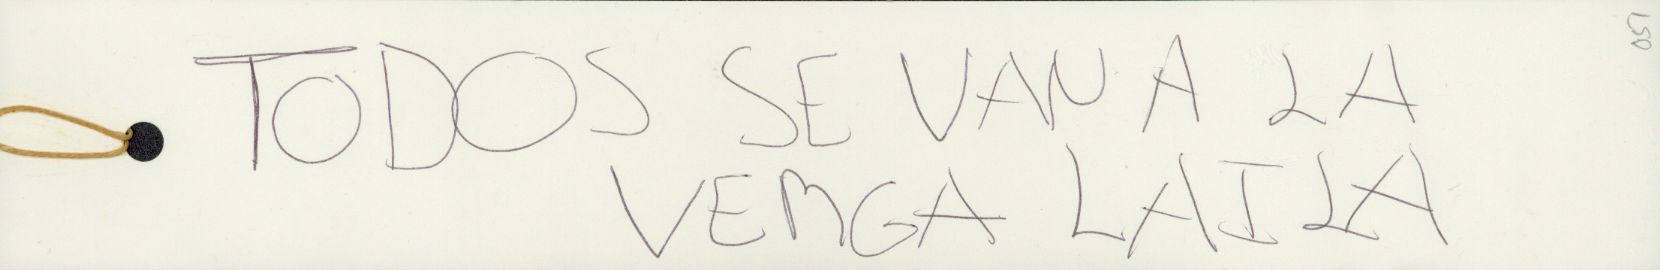 TODOS SE VAN A LA
VERGA LAILA
150